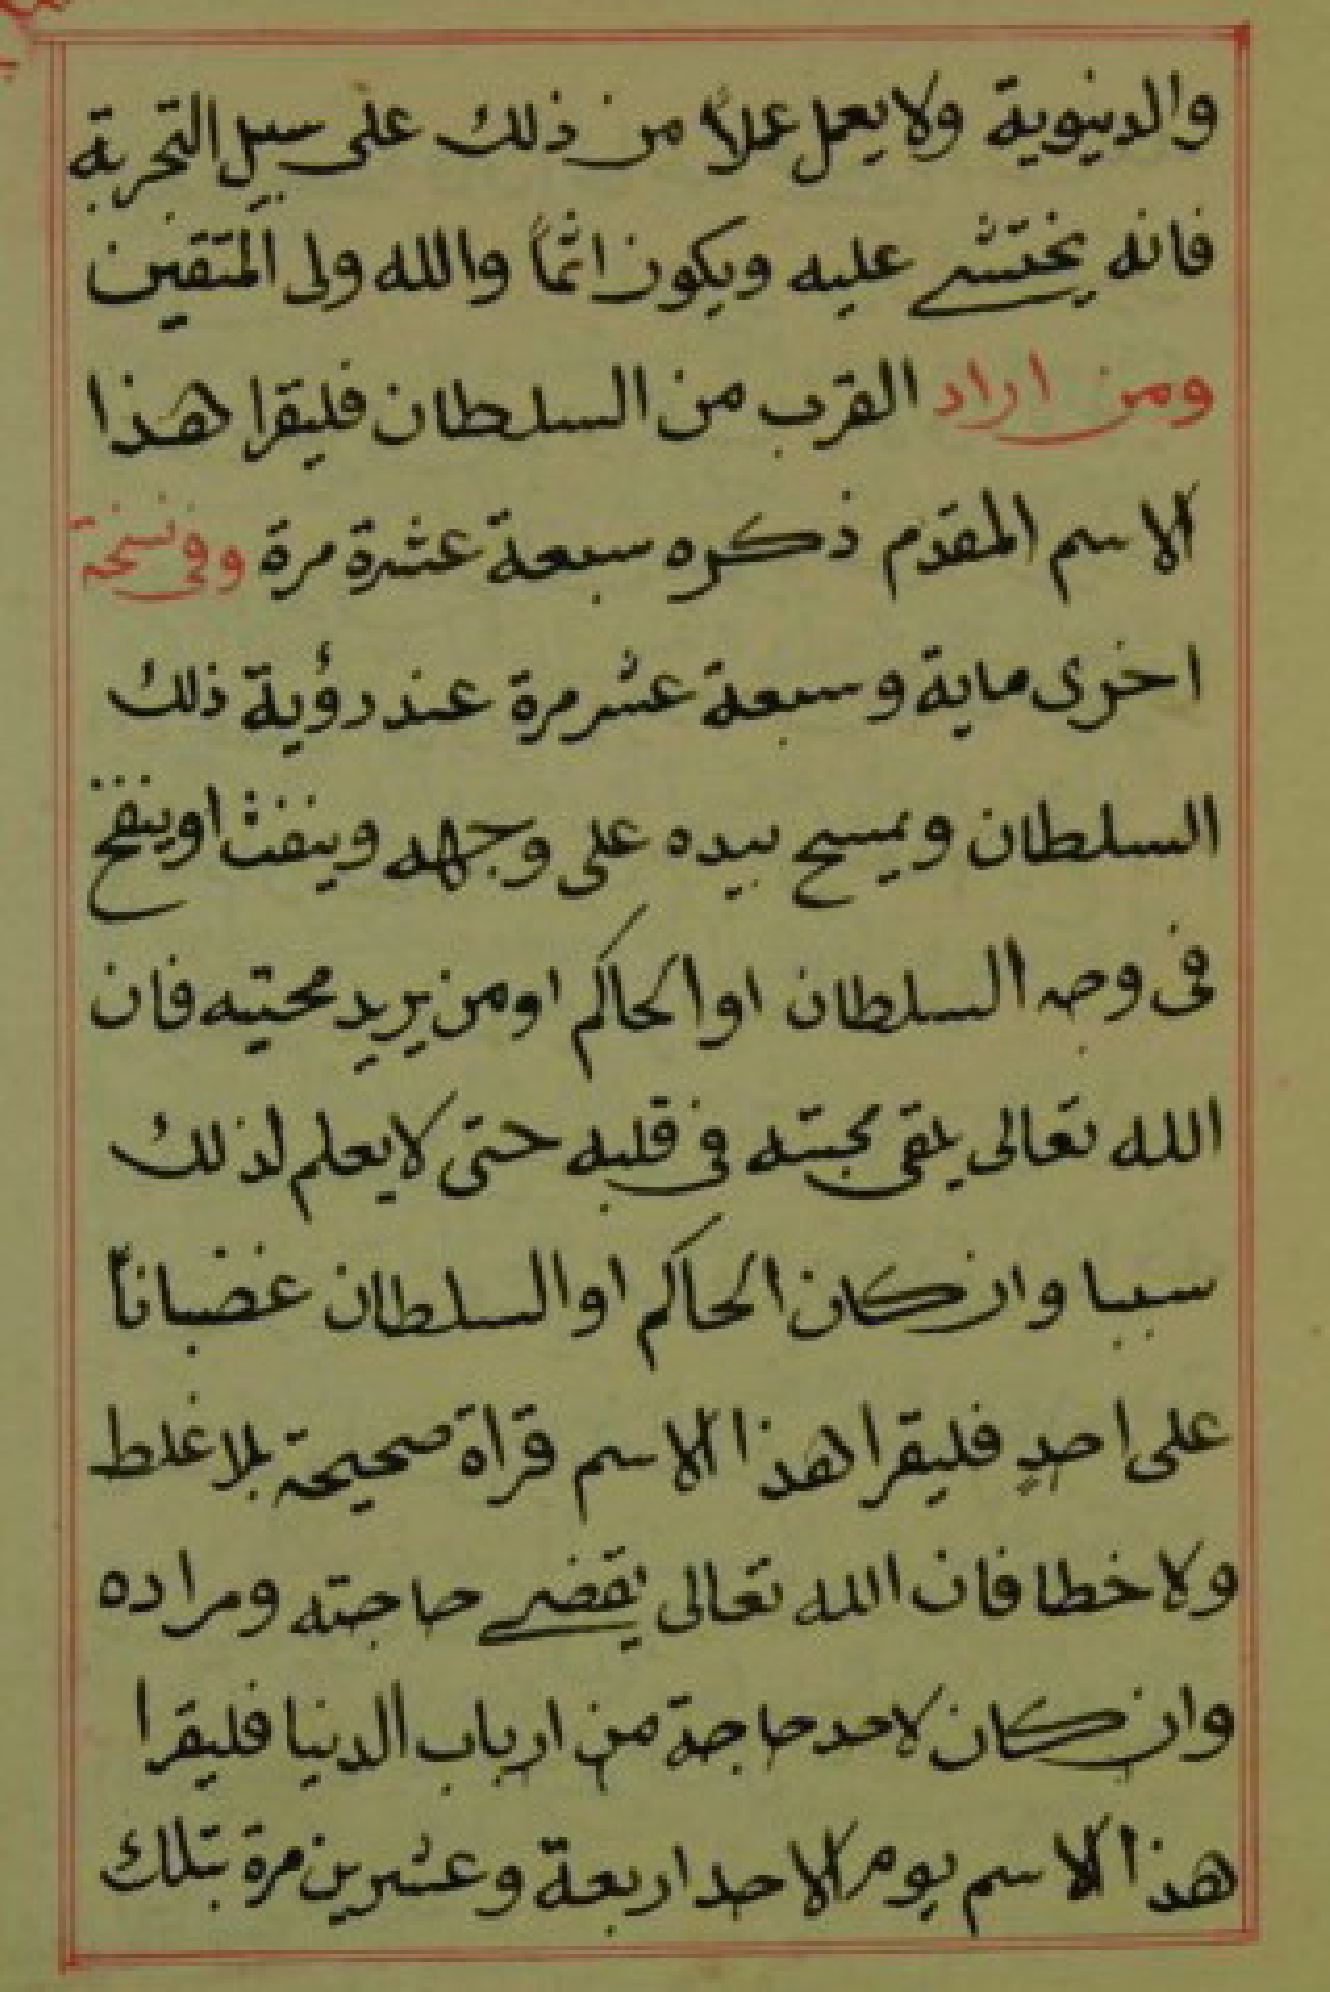 والدينوية ولا يعمل عملاً من ذلك على سبيل التجربة
فانه يختشى عليه ويكون اثماً والله ولى المتقين
ومن اراد القرب من السلطان فليقرا هذا
الاسم المقدم ذكره سبعة عشرة مرة وفى نسخة
اخرى ماية وسبعة عشر مرة عند رؤية ذلك
السلطان ويمسح بيده على وجهه وينفث اوينفخ
فى وجه السلطان او الحاكم اومن يريد محبته فان
الله تعالى يلقى محبته فى قلبه حتى لا يعلم لذلك
سببا وان كان الحاكم او السلطان غضباناً
على احدٍ فليقرا هذا الاسم قراة صحيحة بلا غلط
ولا خطا فان الله تعالى يقضى حاجته ومراده
وان كان لاحد حاجة من ارباب الدنيا فليقرا
هذا الاسم يوم الاحد اربعة وعشرين مرة بتلك